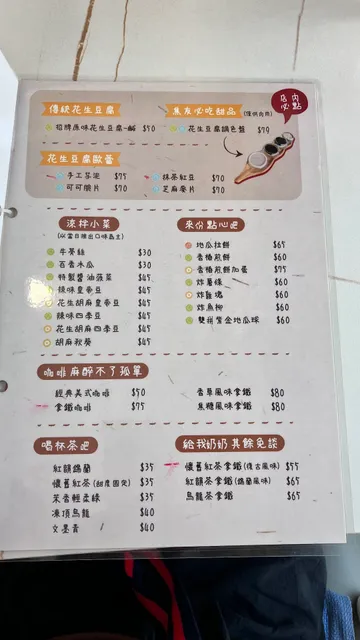 傳統花生豆腐
招牌原味花生豆腐 $70
店內必點
焦友必吃甜品 (僅供內用)
花生豆腐調色盤 $79
花生豆腐歐蕾
手工芋泥 $75
抹茶紅豆 $70
可可脆片 $70
芝麻麥片 $70
涼拌小菜
(以當日推出口味為主)
牛蒡絲 $30
百香木瓜 $30
特製醬油菠菜 $45
辣味皇帝豆 $45
花生胡麻皇帝豆 $45
辣味四季豆 $45
花生胡麻四季豆 $45
胡麻秋葵 $45
來份點心吧
地瓜拉餅 $65
香椿煎餅 $60
香椿煎餅加蛋 $75
炸薯條 $60
炸雞塊 $60
炸魚柳 $60
雙拼黃金地瓜球 $60
咖啡麻醉不了孤單
經典美式咖啡 $70
拿鐵咖啡 $75
香草風味拿鐵 $80
焦糖風味拿鐵 $80
喝杯茶吧
紅韻錫蘭 $35
懷舊紅茶 (甜度固定) $35
茉香輕柔綠 $35
凍頂烏龍 $40
文墨青 $40
給我奶奶 其餘免談
懷舊紅茶拿鐵 (復古風味) $55
紅韻茶拿鐵 (錫蘭風味) $65
烏龍茶拿鐵 $65